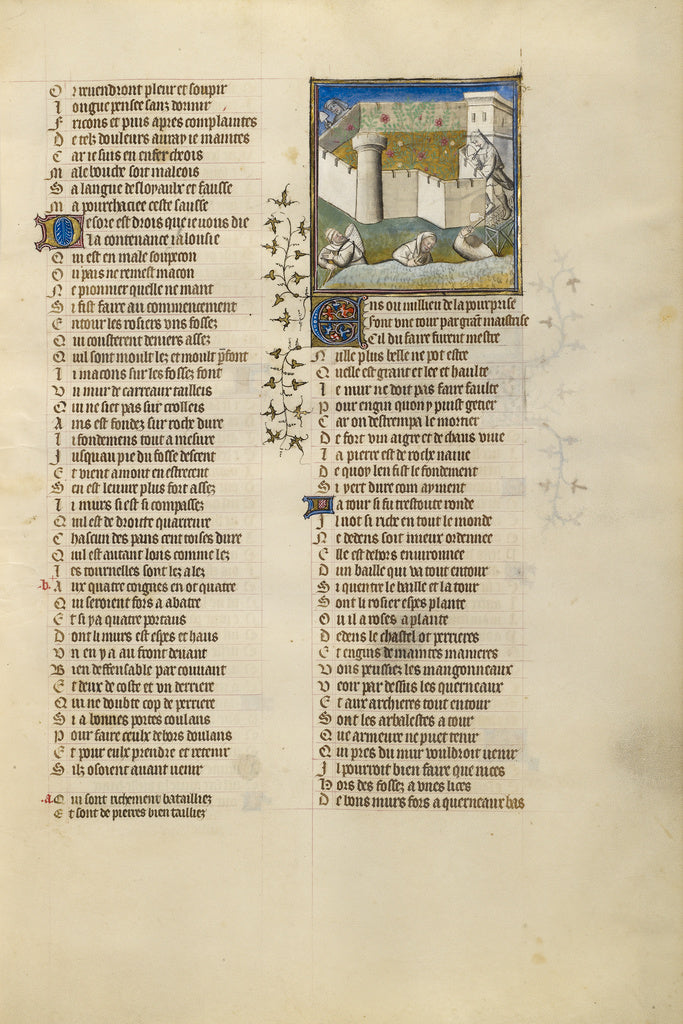 O r reuendront pleur et soupir
L ongue pensee sanz dormir
F ricons et puis apres complaintes
D e telz douleurs auray ie maintes
C ar ie suis en enfer cheois
M ale bouche soit maleois
S a langue desloyaulx et fausse
M a pourchaciee ceste sausse
D esore est drois que ie uous die
L a contenance ialousie
Q ui est en male soupecon
O u pais ne remest macon
N e pionnier quelle ne mant
S i fist faire au commencement
E ntour les rosiers vns fossez
Q ui cousterent deniers assez
Q uil sont moult lez et moult pfont
L i macons sur les fossez font
V n mur de carreaux tailleis
Q ui ne siet pas sur crolleis
A ins est fondez sur roche dure
L i fondemens tout a mesure
J usquau pie du fosse descent
E t vient amont en estrecent
S en est leuure plus fort assez
L i murs si est si compassez
Q uil est de droitte quarreure
C hascun des pans cent toises dure
Q uil est autant lons comme lez
L es tournelles sont lez a lez
.b. A ux quatre coignes en ot quatre
Q ui seroient fors a abatre
E t si ya quatre portaus
D ont li murs est espes et haus
V n en y a au front deuant
B ien deffensable par couuant
E t deux de coste et vn derriere
Q ui ne doubte cop de perriere
S i a bonnes portes coulans
P our faire ceulx dehors doulans
E t pour eulx prendre et retenir
S ilz osoient auant uenir
.a. Q ui sont richement batailliez
E t sont de pierres bien tailliez
E ns ou millieu de la pourprise
Font vne tour par grant maistrise
Cil du faire furent mestre
N ulle plus belle ne pot estre
Q uelle est grant et lee et haulte
L e mur ne doit pas faire faulte
P our engin quon y puist getter
C ar on destrempa le mortier
D e fort vin aigre et de chaus viue
L a pierre est de roche naiue
D e quoy len fist le fondement
S i yert dure com ayment
L a tour si fu trestoute ronde
J l not si riche en tout le monde
N e dedens soit mieux ordennee
E lle est dehors enuironnee
D un baille qui va tout entour
S i quentre le baille et la tour
S ont li rosier espes plante
O u il a roses a plante
D edens le chastel ot perrieres
E t engins de maintes manieres
V ous peussiez les mangonneaux
V eoir par dessus les querneaux
E t aux archieres tout entour
S ont les arbalestes a tour
Q ue armeure ne puet tenir
Q ui pres du mur vouldroit uenir
J l pourroit bien faire que nices
H ors des fossez a vnes lices
D e bons murs fors a querneaux bas